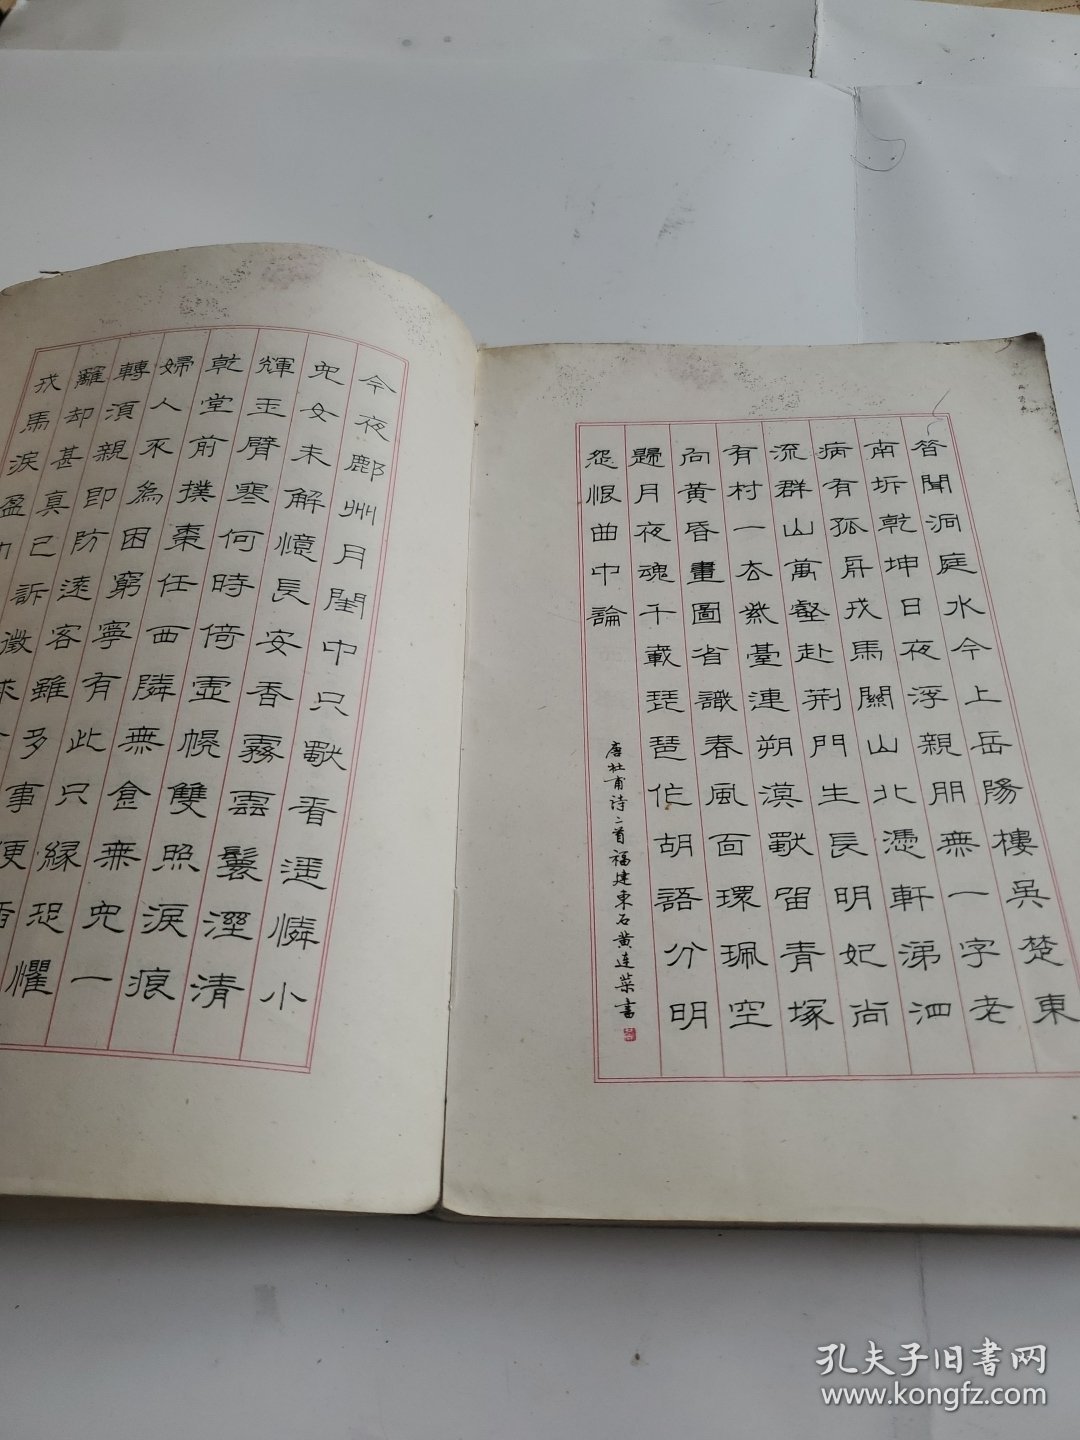 昔聞洞庭水今上岳陽樓吳楚東
南坼乾坤日夜浮親朋無一字老
病有孤舟戎馬關山北憑軒涕泗
流群山萬壑赴荆門生長明妃尚
有村一去紫臺連朔漠獨留青塚
向黃昏畫圖省識春風面環珮空
歸月夜魂千載琵琶作胡語分明
怨恨曲中論
唐杜甫诗二首福建東石黄连葉書
今夜鄜州月閨中只獨看遥憐小
兒女未解憶長安香霧雲鬟溼清
輝玉臂寒何時倚虛幌雙照淚痕
乾堂前撲棗任西鄰無食無兒一
婦人不爲困窮寧有此只緣恐懼
轉須親即防遠客雖多事便
籬却甚真已訴徵求
戎馬淚盈巾
孔夫子旧書网
www.kongfz.com